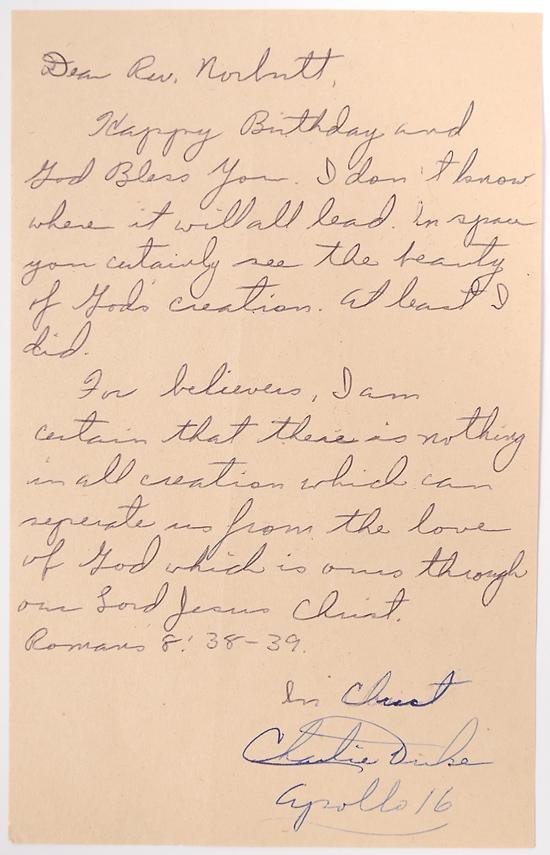 Dear Rev. Norbutt,
Happy Birthday and
God Bless You. I don't know
where it will all lead. In space
you certainly see the beauty
of God's creation. At least I
did.
For believers, I am
certain that there is nothing
in all creation which can
seperate us from the love
of God which is ours through
our Lord Jesus Christ.
Romans 8:38-39.
In Christ
Charlie Duke
Apollo 16